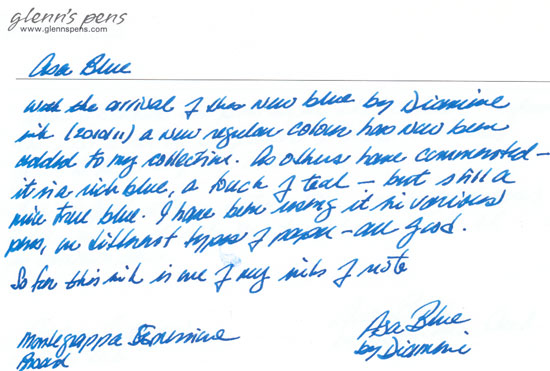 glenn's pens
www.glennspens.com
Asa Blue
With the arrival of this new blue by Diamine
ink (2010/11) a new regular colour has now been
added to my collection. As others have commented -
it is a rich blue, a touch of teal - but still a
nice true blue. I have been using it in various
pens, on different types of paper - all good.
So far this ink is one of my inks of note
Montegrappa
Broad
Asa Blue
by Diamine